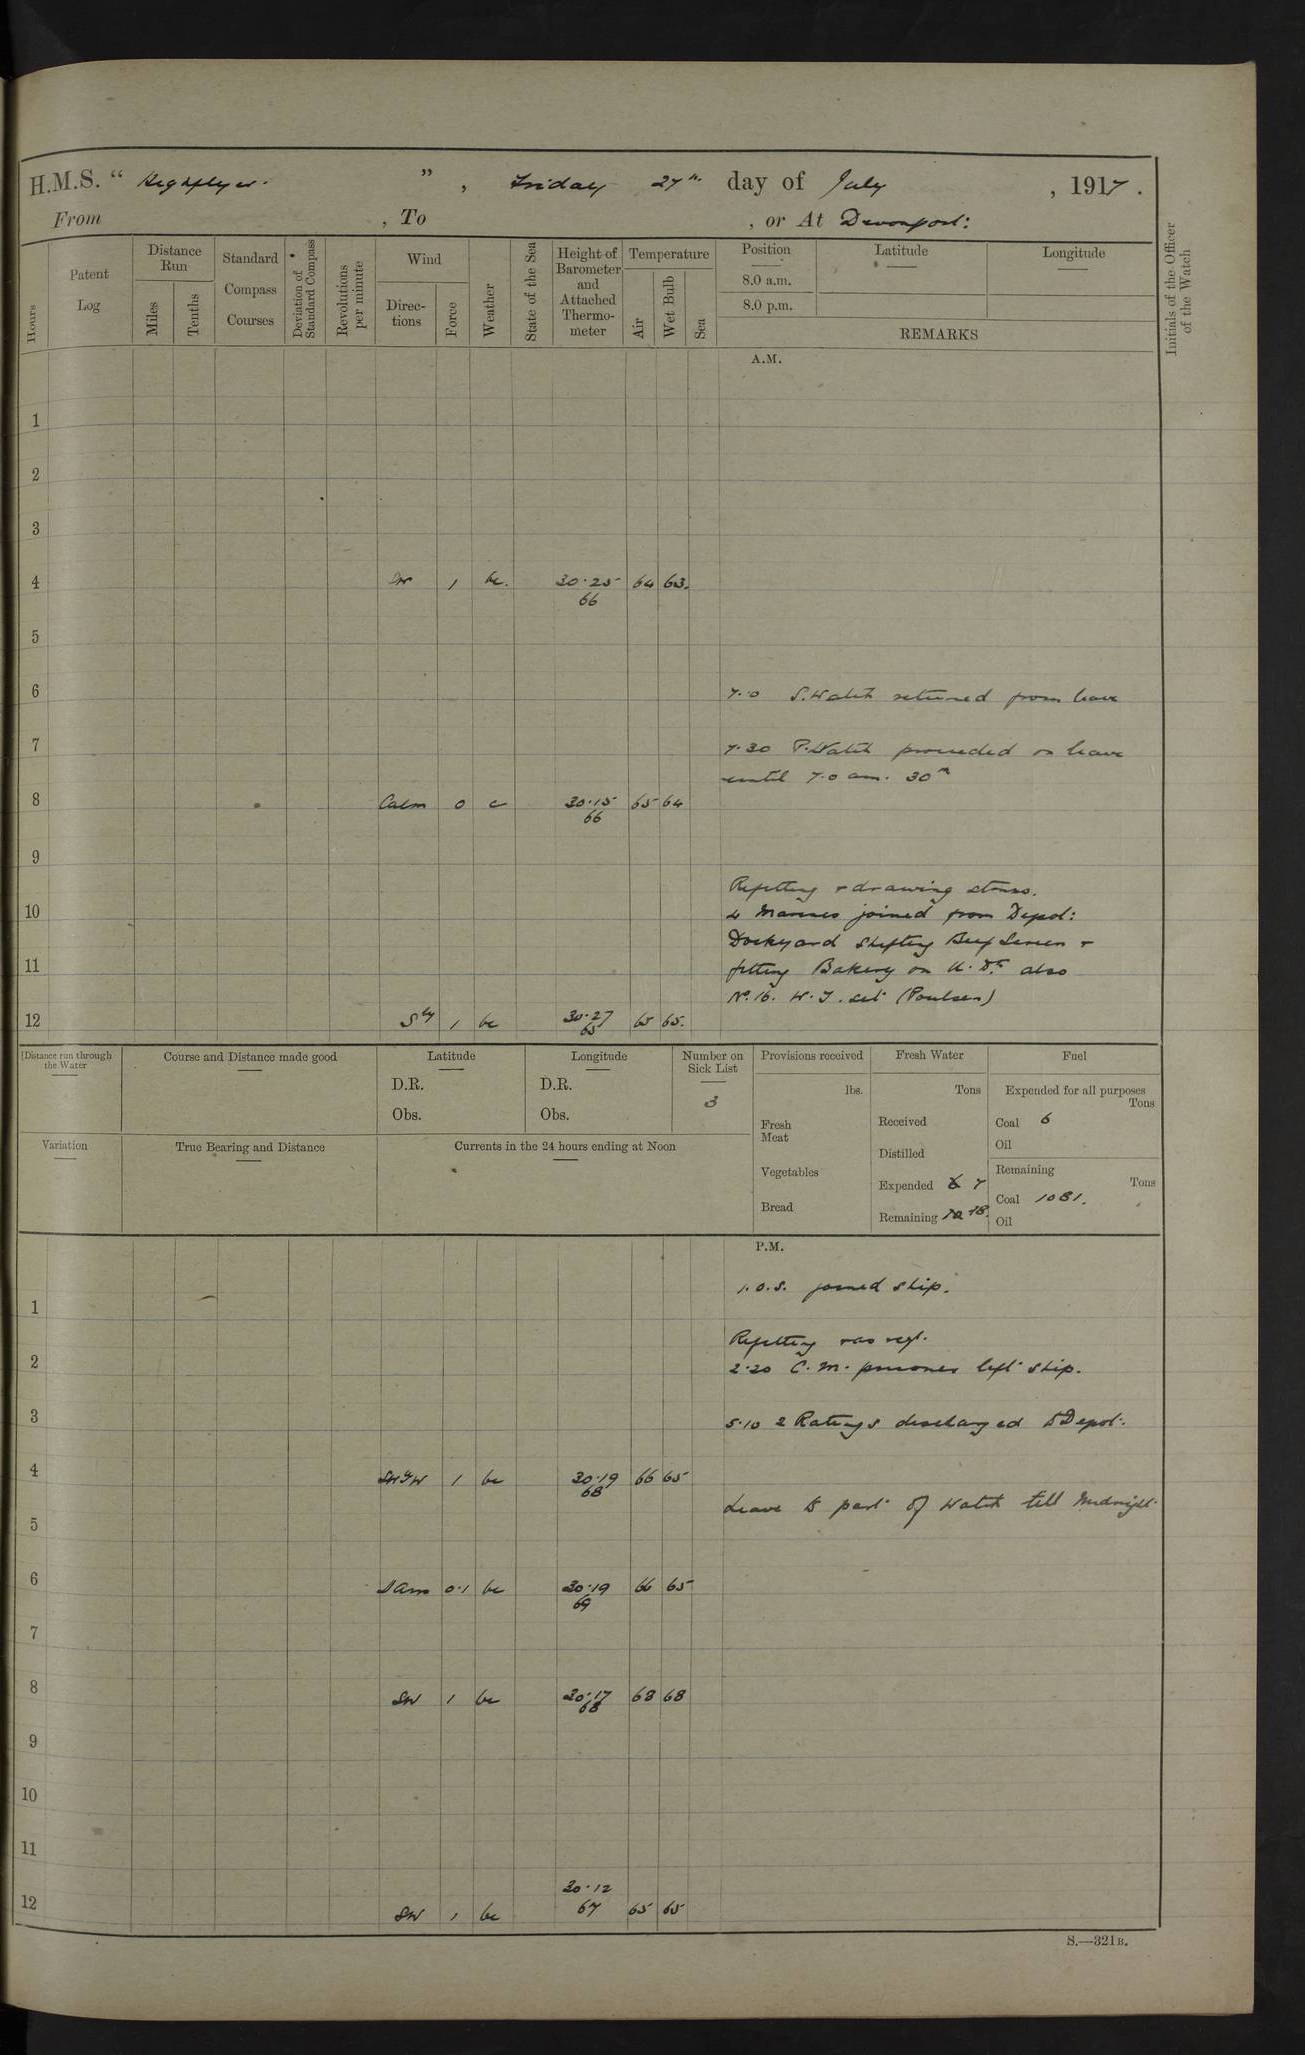 H.M.S. “ Highflyer. ” , Friday 27th day of July , 1917.
From , To , or At Devonport:
Hours
Patent Log
Distance Run
Miles
Tenths
Standard Compass Courses
Deviation of Standard Compass
Revolutions per minute
Wind
Directions
Force
Weather
State of the Sea
Height of Barometer and Attached Thermometer
Temperature
Air
Wet Bulb
Sea
Position
8.0 a.m.
8.0 p.m.
Latitude
Longitude
REMARKS
Initials of the Officer of the Watch
A.M.
1
2
3
4 SW 1 bc. 30.25 64 63.
66
5
6
7.0 S. Watch returned from leave
7
7.30 P. Watch proceeded on leave
until 7.0 am. 30th
8 Calm 0 c 30.15 65 64
66
9
Refitting & drawing stores.
10
4 Marines joined from Depot:
Dockyard shifting Beef Screen &
11
fitting Bakery on U. Dk also
No. 16. W. T. set (Poulsen)
12 Sly 1 bc 30.27 65 65.
65
Distance run through the Water
Course and Distance made good
Latitude
D.R.
Obs.
Longitude
D.R.
Obs.
Number on Sick List
3
Provisions received
lbs.
Fresh Meat
Vegetables
Bread
Fresh Water
Tons
Received
Distilled
Expended 7
Remaining 18.
Fuel
Expended for all purposes
Tons
Coal 6
Oil
Remaining
Tons
Coal 1081.
Oil
Variation
True Bearing and Distance
Currents in the 24 hours ending at Noon
P.M.
1. O.S. joined ship.
1
Refitting as reqt.
2
2.20 C. M. prisoner left ship.
3
5.10 2 Ratings discharged to Depot:
4 SWyW 1 bc 30.19 66 65
68
Leave to part of Watch till Midnight
5
6 0.1 bc 30.19 66 65
69
7
8 SW 1 bc 30.17 68 68
68
9
10
11
30.12
12 SW 1 bc 67 65 65
S.—321B.